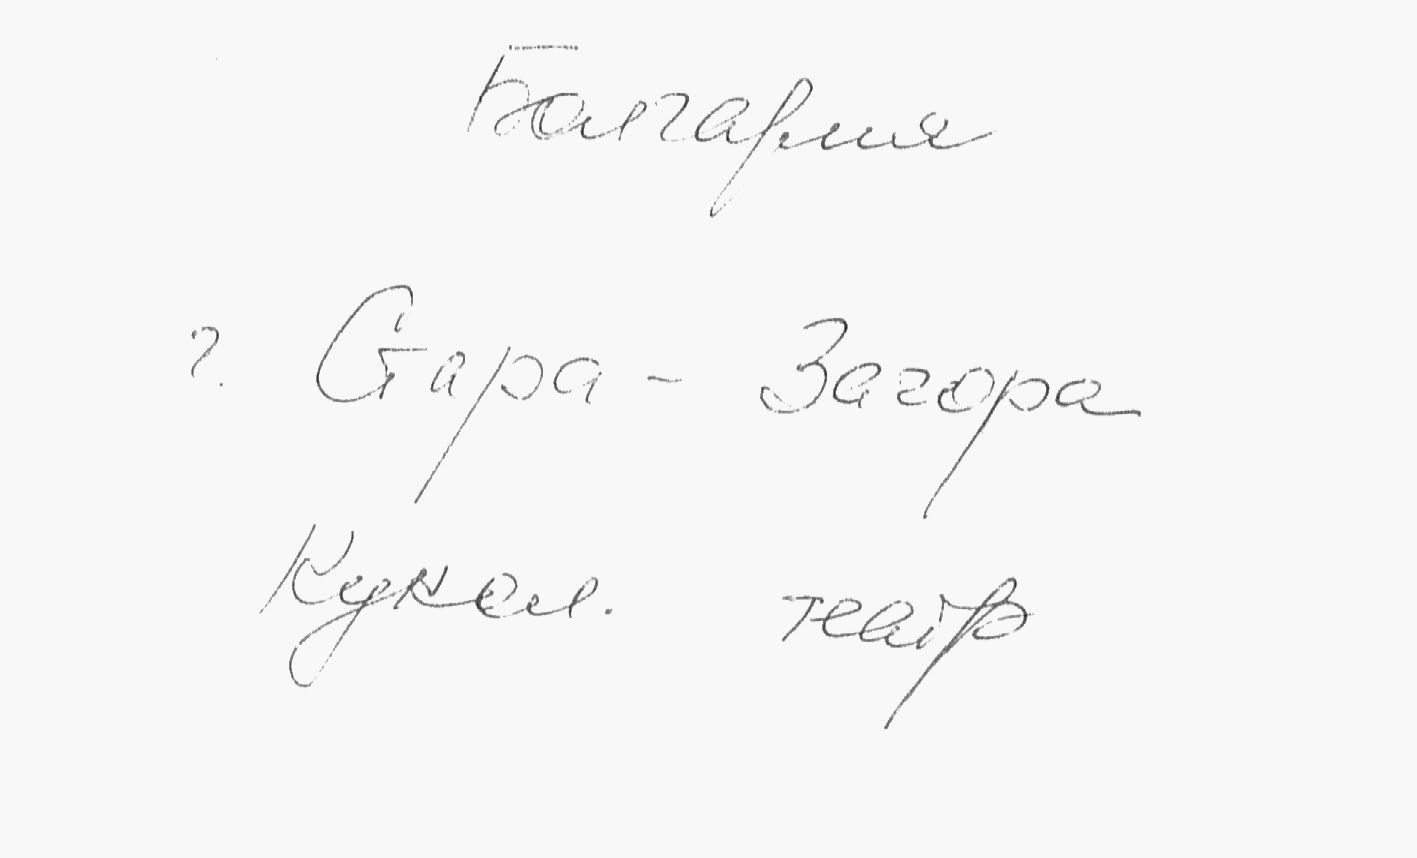 Болгария
г. Стара - Загора
Кукол. театр